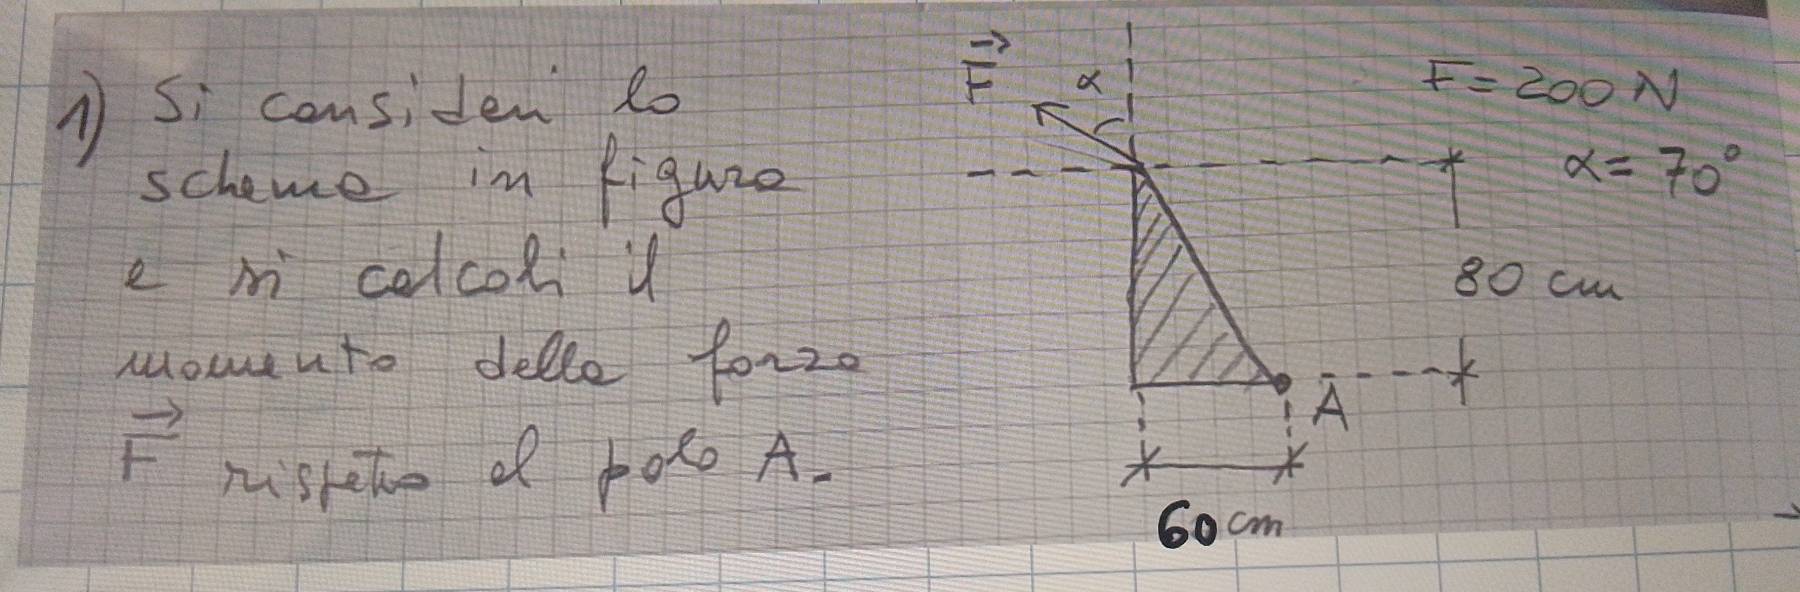 1) Si consideri lo
schema in figura
e si calcoli il
momento della forza
F rispetto al polo A.
F
α
F = 200 N
α = 70°
80 cm
A
60 cm